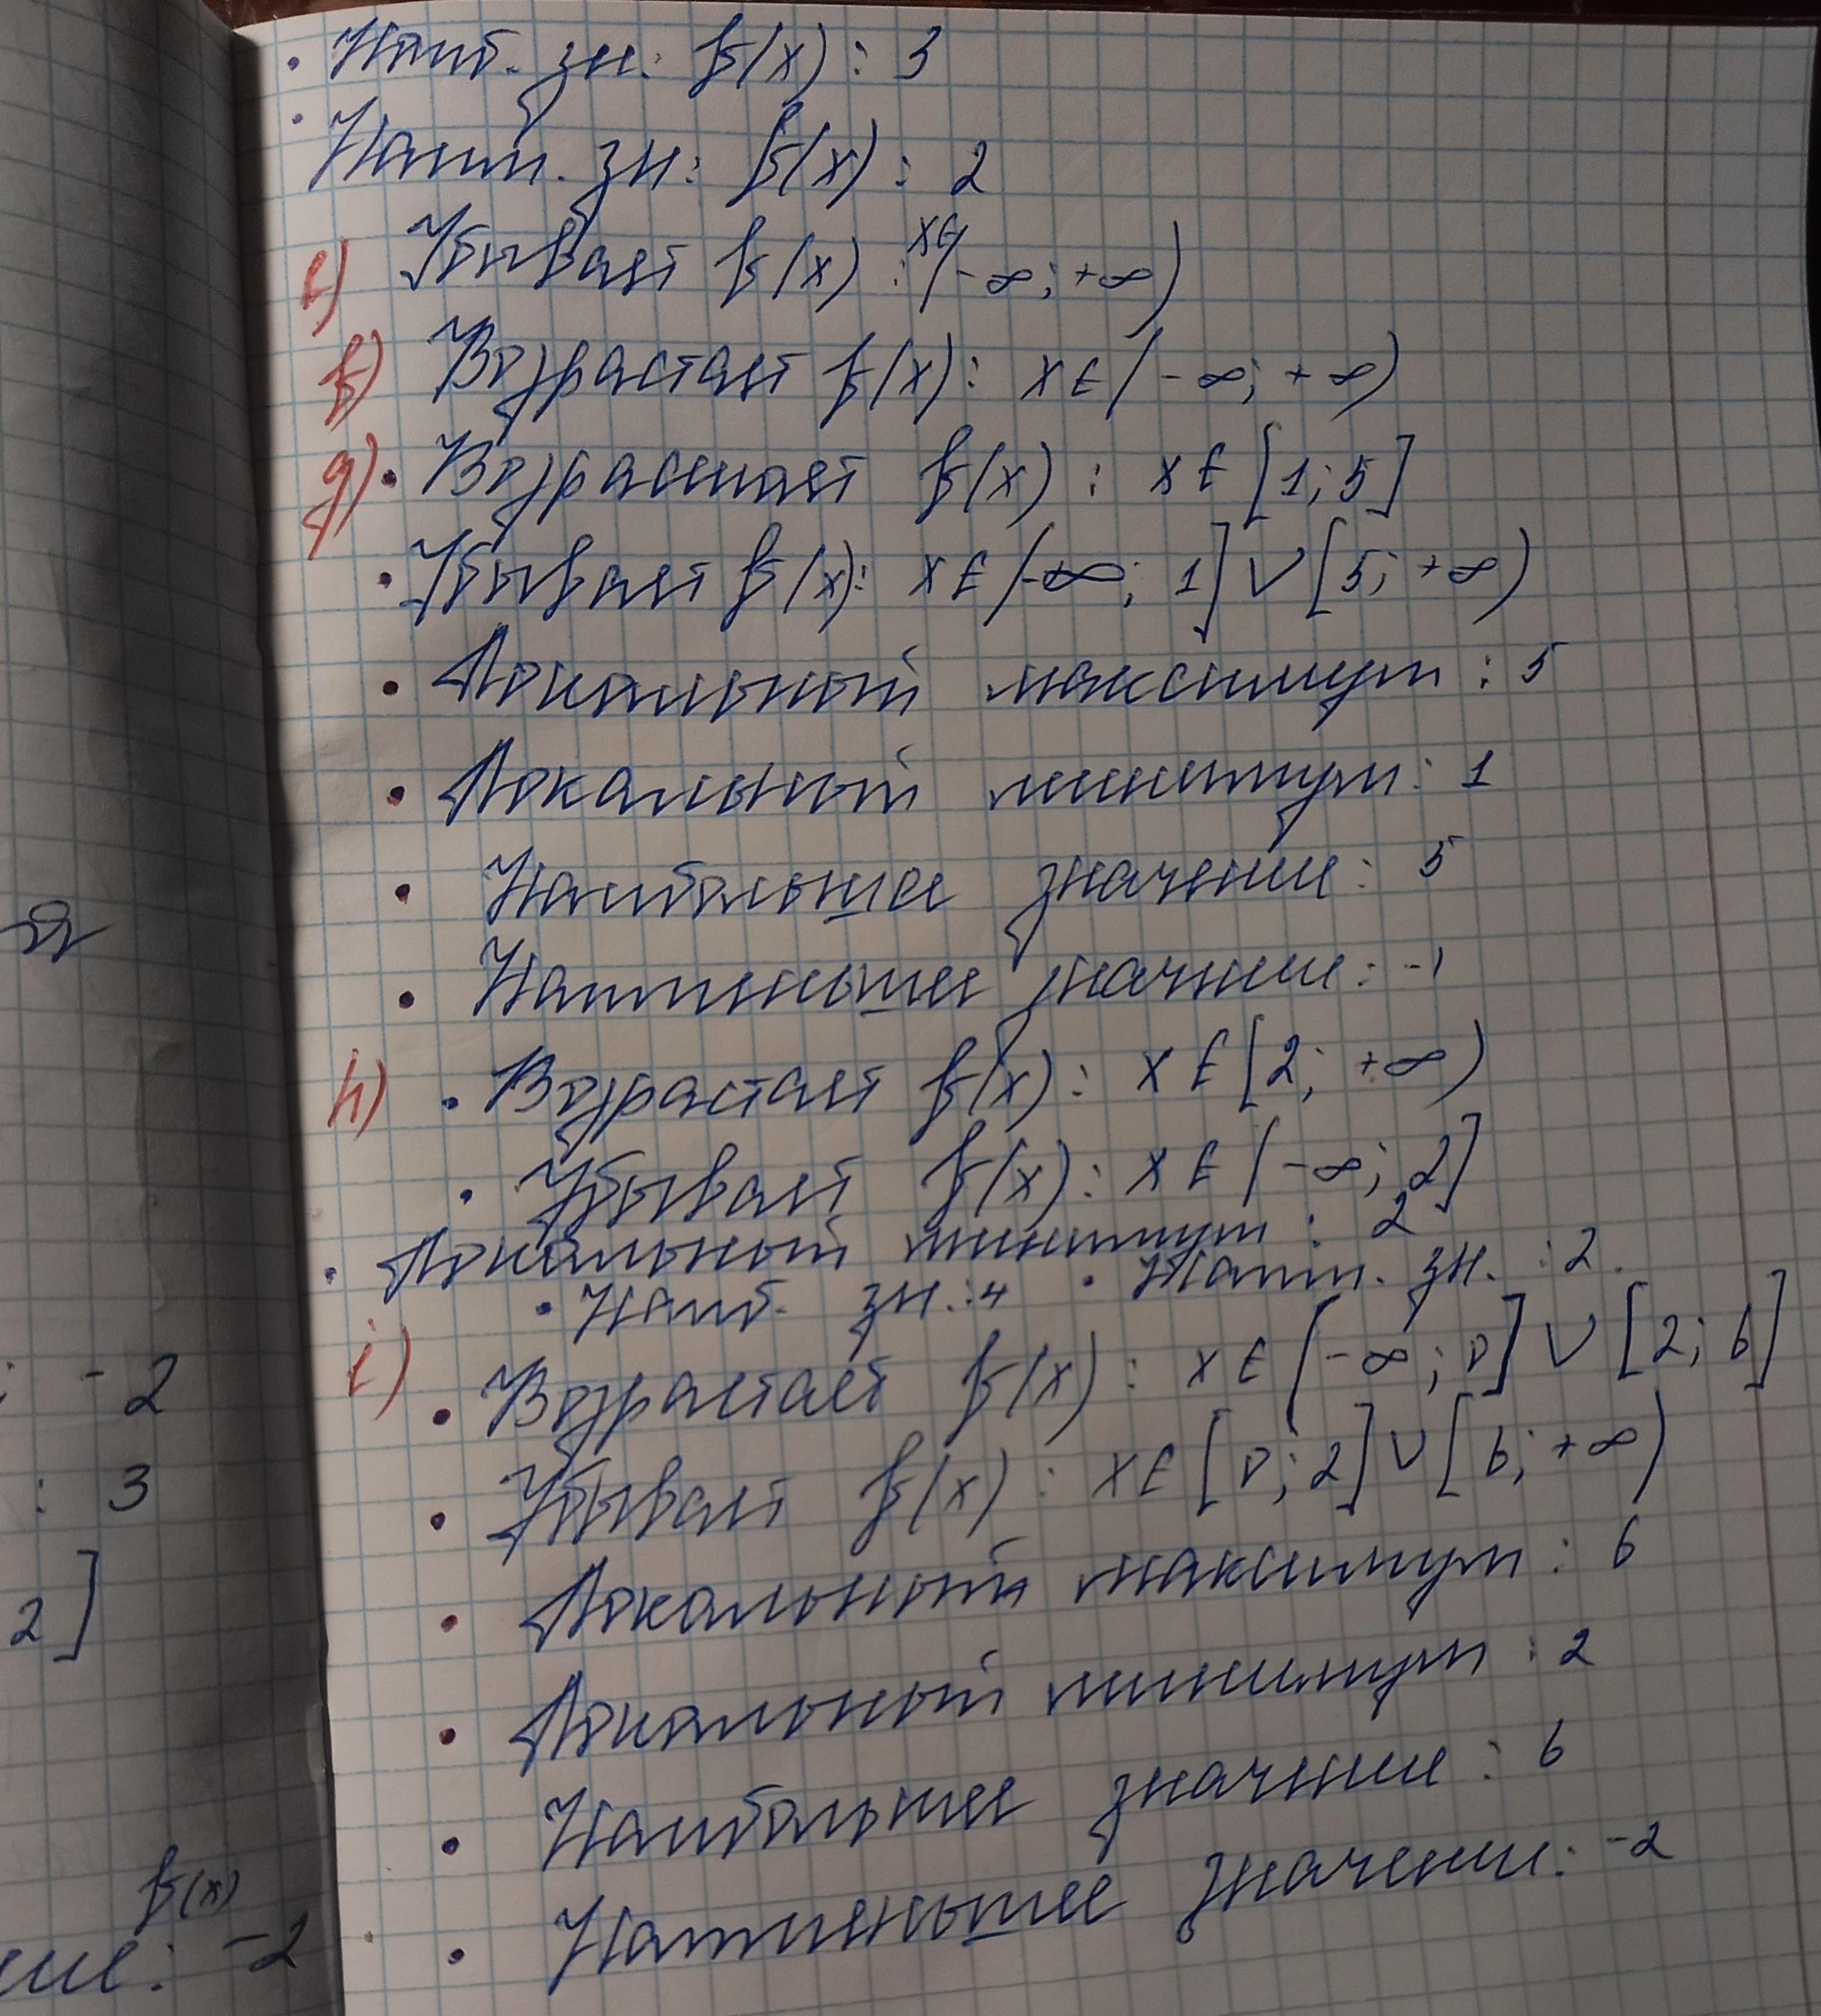 • Наиб. зн. f(x) : 3
• Наим. зн : f(x) : 2
e) Убывает f(x) : x∈(-∞; +∞)
f) Возрастает f(x) : x∈(-∞; +∞)
g) • Возрастает f(x) : x∈[1; 5]
• Убывает f(x): x∈(-∞; 1]∨[5; +∞)
• Локальный максимум : 5
• Локальный минимум : 1
• Наибольшее значение : 5
• Наименьшее значение : -1
h) • Возрастает f(x) : x∈[2; +∞)
• Убывает f(x) : x∈(-∞; 2]
• Локальный минимум : 2
• Наиб. зн. : 4 • Наим. зн. : 2
i) • Возрастает f(x) : x∈(-∞; 0]∨[2; 6]
• Убывает f(x) : x∈[0; 2]∨[6; +∞)
• Локальный максимум : 6
• Локальный минимум : 2
• Наибольшее значение : 6
• Наименьшее значение : -2
: -2
: 3
2]
f(x)
ние: -2